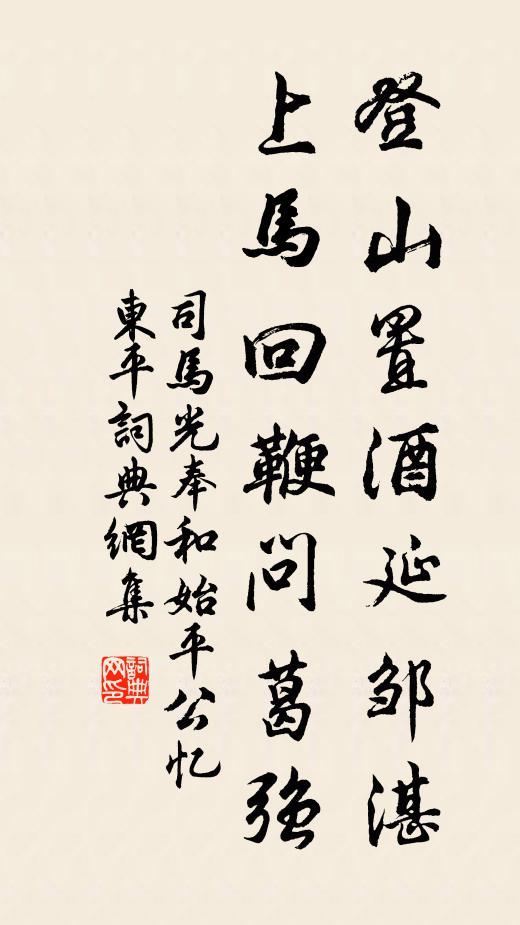 登山置酒延邹湛
上馬回鞭問葛强
司馬光奉和始平公忆
東平詞典網集
詞典
网印